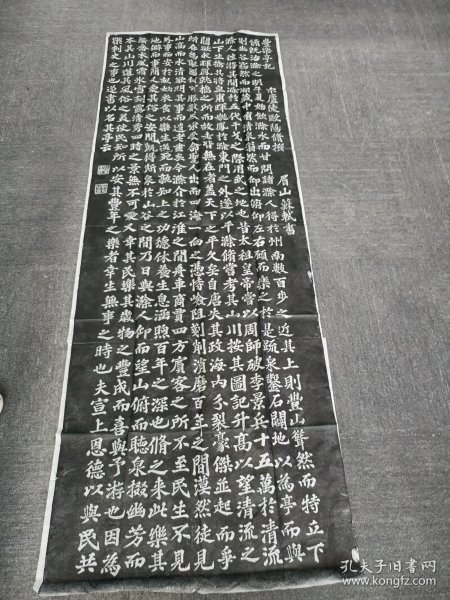 豐樂亭記 宋廬陵歐陽脩撰 眉山蘇軾書
脩既治滁之明年夏始飲滁水而甘問諸滁人得於州南數百步之近其上則豐山聳然而特立下
則幽谷窈然而深藏中有清泉滃然而仰出俯仰左右顧而樂之於是疏泉鑿石闢地以為亭而與
滁人往游其間滁於五代干戈之際用武之地也昔太祖皇帝嘗以周師破李景兵十五萬於清流
山下生擒其將皇甫暉姚鳳於滁東門之外遂以平滁脩嘗考其山川按其圖記升高以望清流之
關欲求暉鳳就擒之所而故老皆無在者蓋天下之平久矣自唐失其政海內分裂豪傑並起而爭
所在為敵國者何可勝數及宋受天命聖人出而四海一向之憑恃險阻剗削消磨百年之間漠然徒見
山高而水清欲問其事而遺老盡矣今滁介於江淮之間舟車商賈四方賓客之所不至民生不見
外事而安於畎畝衣食以樂生送死而孰知上之功德休養生息涵煦百年之深也脩之來此樂其
地僻而事簡又愛其俗之安閒既得斯泉於山谷之間乃日與滁人仰而望山俯而聽泉掇幽芳而
蔭喬木風霜冰雪刻露清秀四時之景無不可愛又幸其民樂其歲物之豐成而喜與予游也因為
本其山川道其風俗之美使民知所以安其豐年之樂者幸生無事之時也夫宣上恩德以與民共
樂刺史之事也遂書以名其亭云
孔夫子旧书网
www.kongfz.com